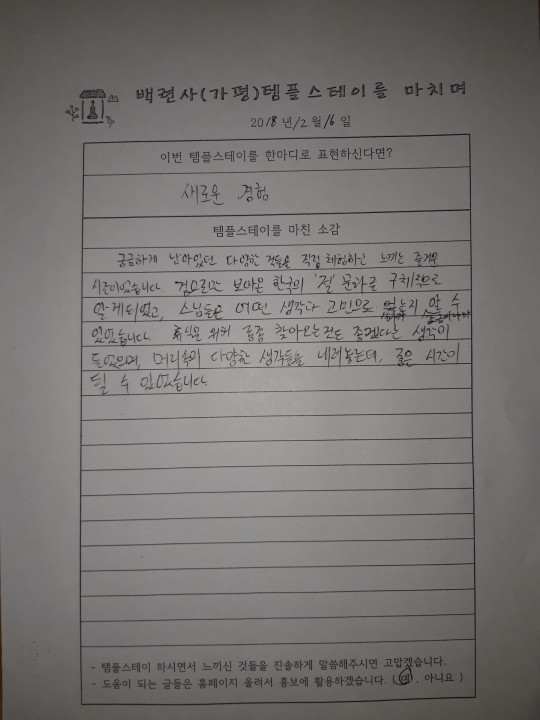 백련사(가평)템플스테이를 마치며
2018년 12월 16일
이번 템플스테이를 한마디로 표현하신다면?
새로운 경험
템플스테이를 마친 소감
궁금하게 남아있던 다양한 것들을 직접 체험하고 느끼는 즐거운
시간이었습니다. 겉으로만 보아온 한국의 '절' 문화를 구체적으로
알게되었고, 스님들은 어떤 생각과 고민으로 알 수
있었습니다. 휴식을 위해 종종 찾아오는것도 좋겠다는 생각이
들었으며, 머리속의 다양한 생각들을 내려놓는데, 좋은 시간이
될 수 있었습니다.
- 템플스테이 하시면서 느끼신 것들을 진솔하게 말씀해주시면 고맙겠습니다.
- 도움이 되는 글들은 홈페이지 올려서 홍보에 활용하겠습니다. ( 예 , 아니요 )